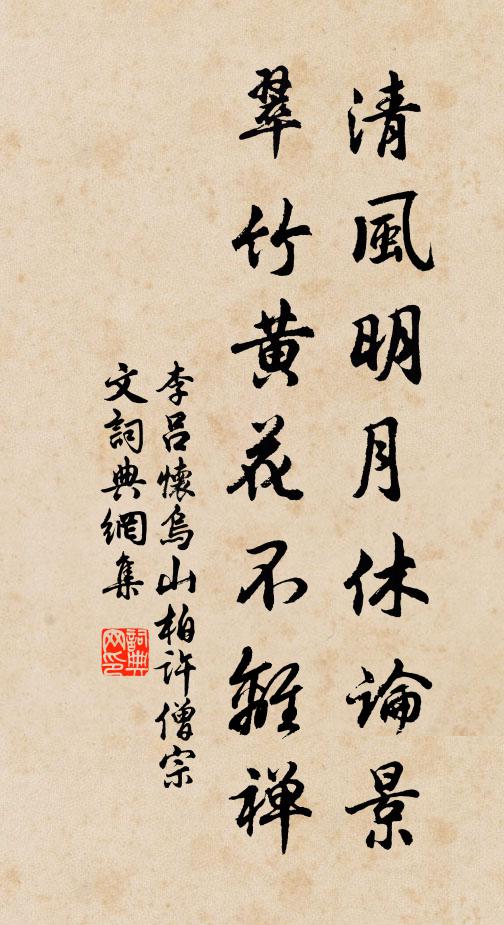 清風明月休論景
翠竹黃花不離禅
李呂懷烏山柏許僧宗
文詞典網集
詞典網印